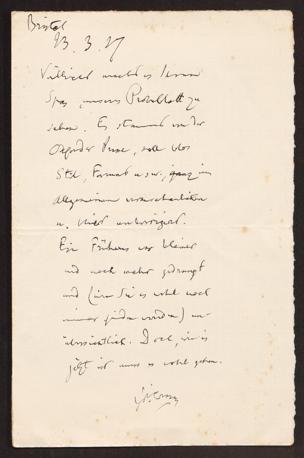 Bristol
23. 3. 27
Vielleicht macht es Ihnen
Spass, unseres Probeblatt zu
sehen. Es stammt von der
Oxforder Presse, soll blos
Stil, Format u.s.w., ganz im
allgemeinen
u. nicht
Ein früheres war kleiner
und noch mehr gedrängt
und (wie Sie es wohl noch
immer finden werden) un-
übersichtlich. Doch, wie es
jetzt ist muss es wohl gehen.